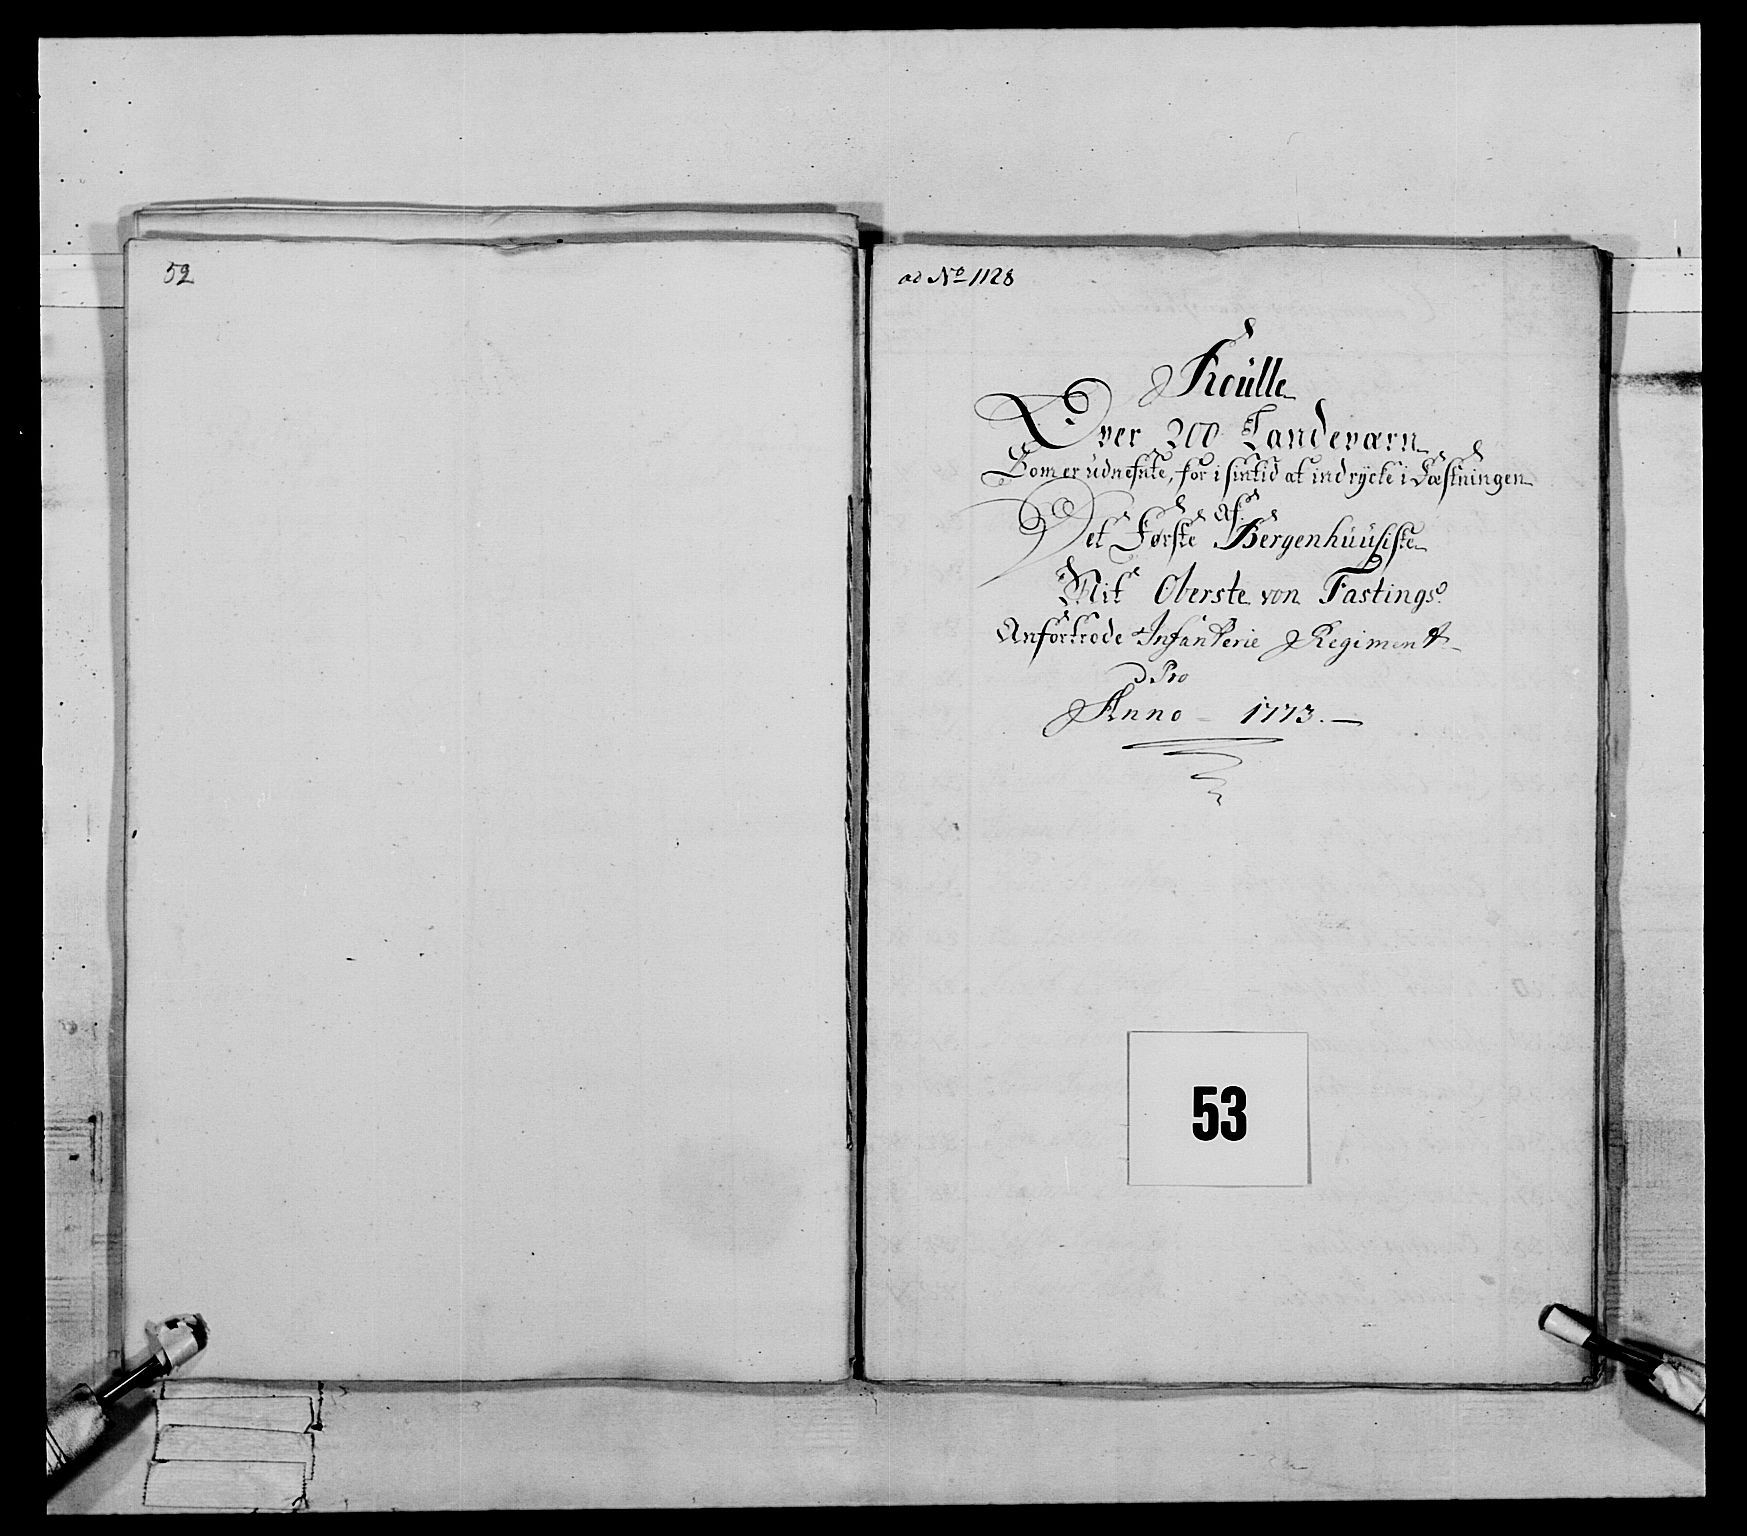 52
ad No 1128
Roülle
Over 200 Landeværn
Som er üdnefnte, for i sin tid at indrycke i Fæstningen
Af
Det Første Bergenhüüsiske
Mit Oberste von Fastings
Anfortrode Infanterie Regiment
Pro
Anno - 1773. -
53